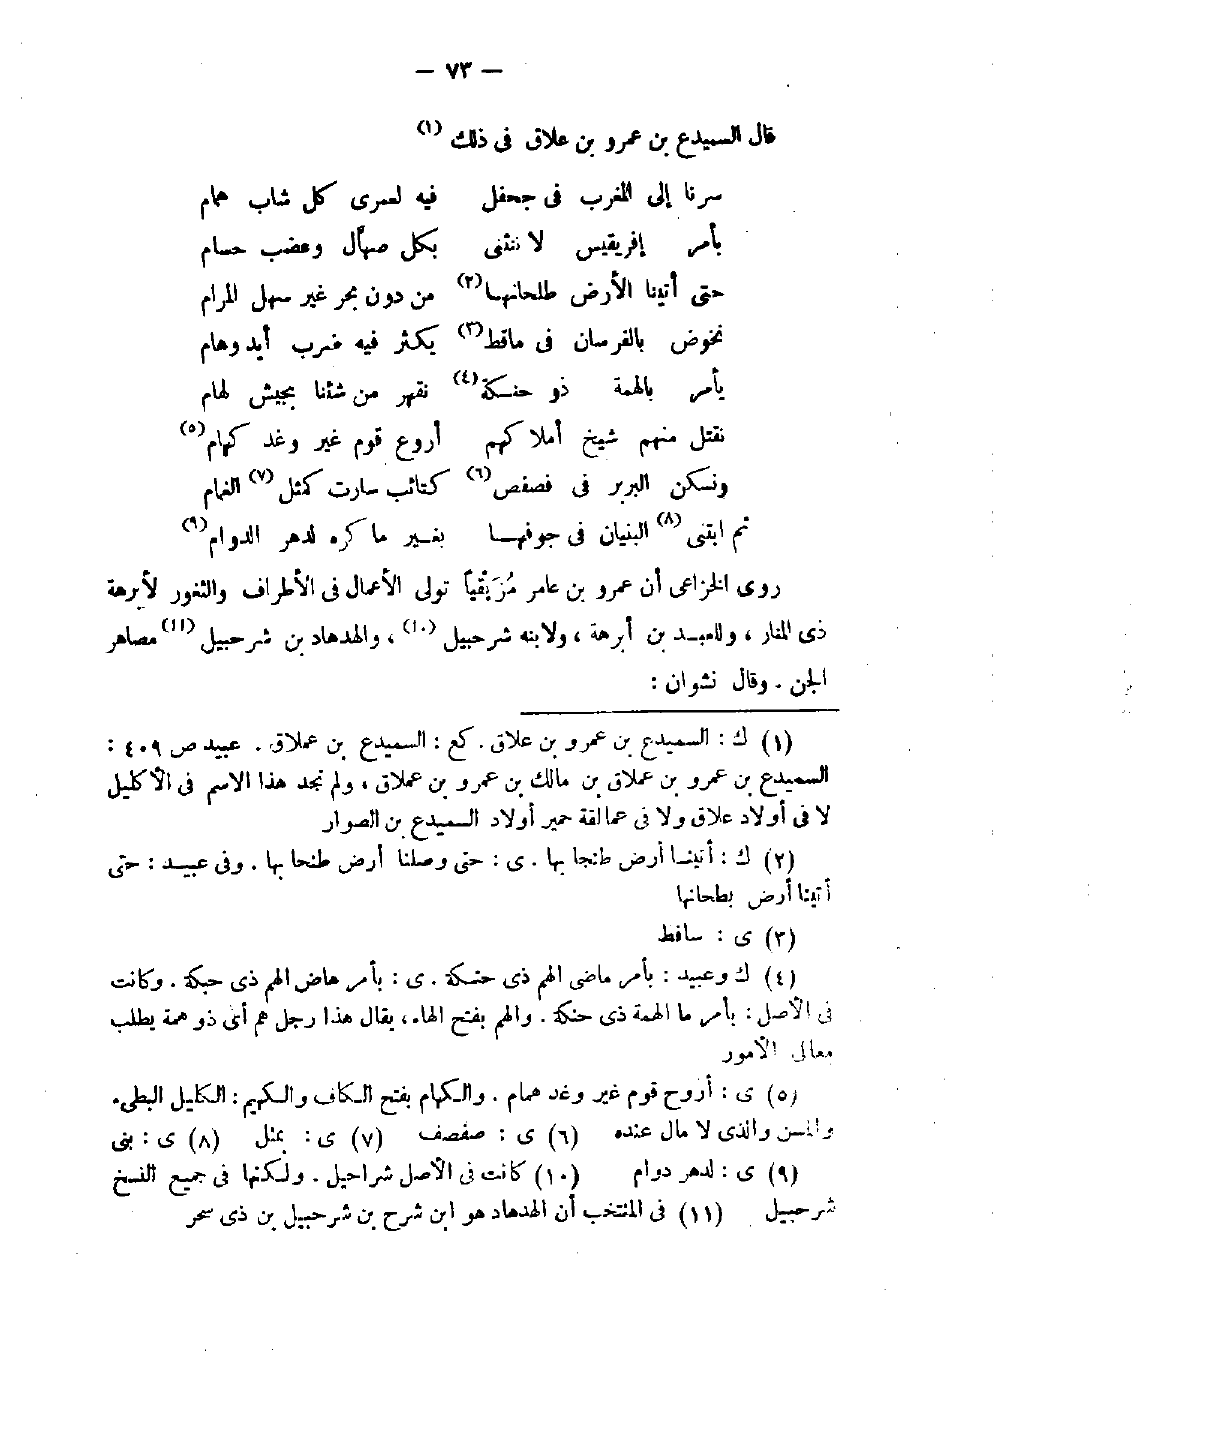 — ٧٣ —
قال السميدع بن عمرو بن علاق فى ذلك (١)
سرنا إلى المغرب فى جحفل فيه لعمرى كل شاب همام
بأمر إفريقيس لا ننثنى بكل صهّال وعضب حسام
حتى أتينا الأرض طلحانها (٢) من دون بحر غير سهل المرام
نخوض بالفرسان فى ماقط (٣) يكثر فيه ضرب أيد وهام
يأمر بالهمة ذو حنكة (٤) نقهر من شئنا بجيش لهام
نقتل منهم شيخ أملاكهم أروع قوم غير وغد كهام (٥)
ونسكن البربر فى فصفص (٦) كتائب سارت كمثل (٧) الغمام
ثم ابتنى (٨) البنيان فى جوفها بغير ما كره لدهر الدوام (٩)
روى الخزاعى أن عمرو بن عامر مُزَيْقيأ تولى الأعمال فى الأطراف والثغور لأبرهة
ذى المنار ، وللعبد بن أبرهة ، ولابنه شرحبيل (١٠) ، والهدهاد بن شرحبيل (١١) مصاهر
الجن . وقال نشوان :
(١) ك : السميدع بن عمرو بن علاق . كع : السميدع بن عملاق . عبيد ص ٤٠٩ :
السميدع بن عمرو بن عملاق بن مالك بن عمرو بن عملاق ، ولم نجد هذا الاسم فى الأكليل
لا فى أولاد علاق ولا فى عمالقة حمير أولاد السميدع بن الصوار
(٢) ك : أتينا أرض طنجا بها . ى : حتى وصلنا أرض طنحا بها . وفى عبيد : حتى
أتينا أرض بطحانها
(٣) ى : ساقط
(٤) ك وعبيد : بأمر ماضى الهم ذى حنكة . ى : بأمر هاض الهم ذى حبكة . وكانت
فى الأصل : بأمر ما الهمة ذى حنكة . والهم بفتح الهاء ، يقال هذا رجل هم أى ذو همة يطلب
معالى الأمور
(٥) ى : أروح قوم غير وغد همام . والكهام بفتح الكاف والكهيم : الكليل البطىء
والمسن والذى لا مال عنده (٦) ى : صفصف (٧) ى : بمثل (٨) ى : بنى
(٩) ى : لدهر دوام (١٠) كانت فى الأصل شراحيل . ولكنها فى جميع النسخ
شرحبيل (١١) فى المنتخب أن الهدهاد هو ابن شرح بن شرحبيل بن ذى سحر